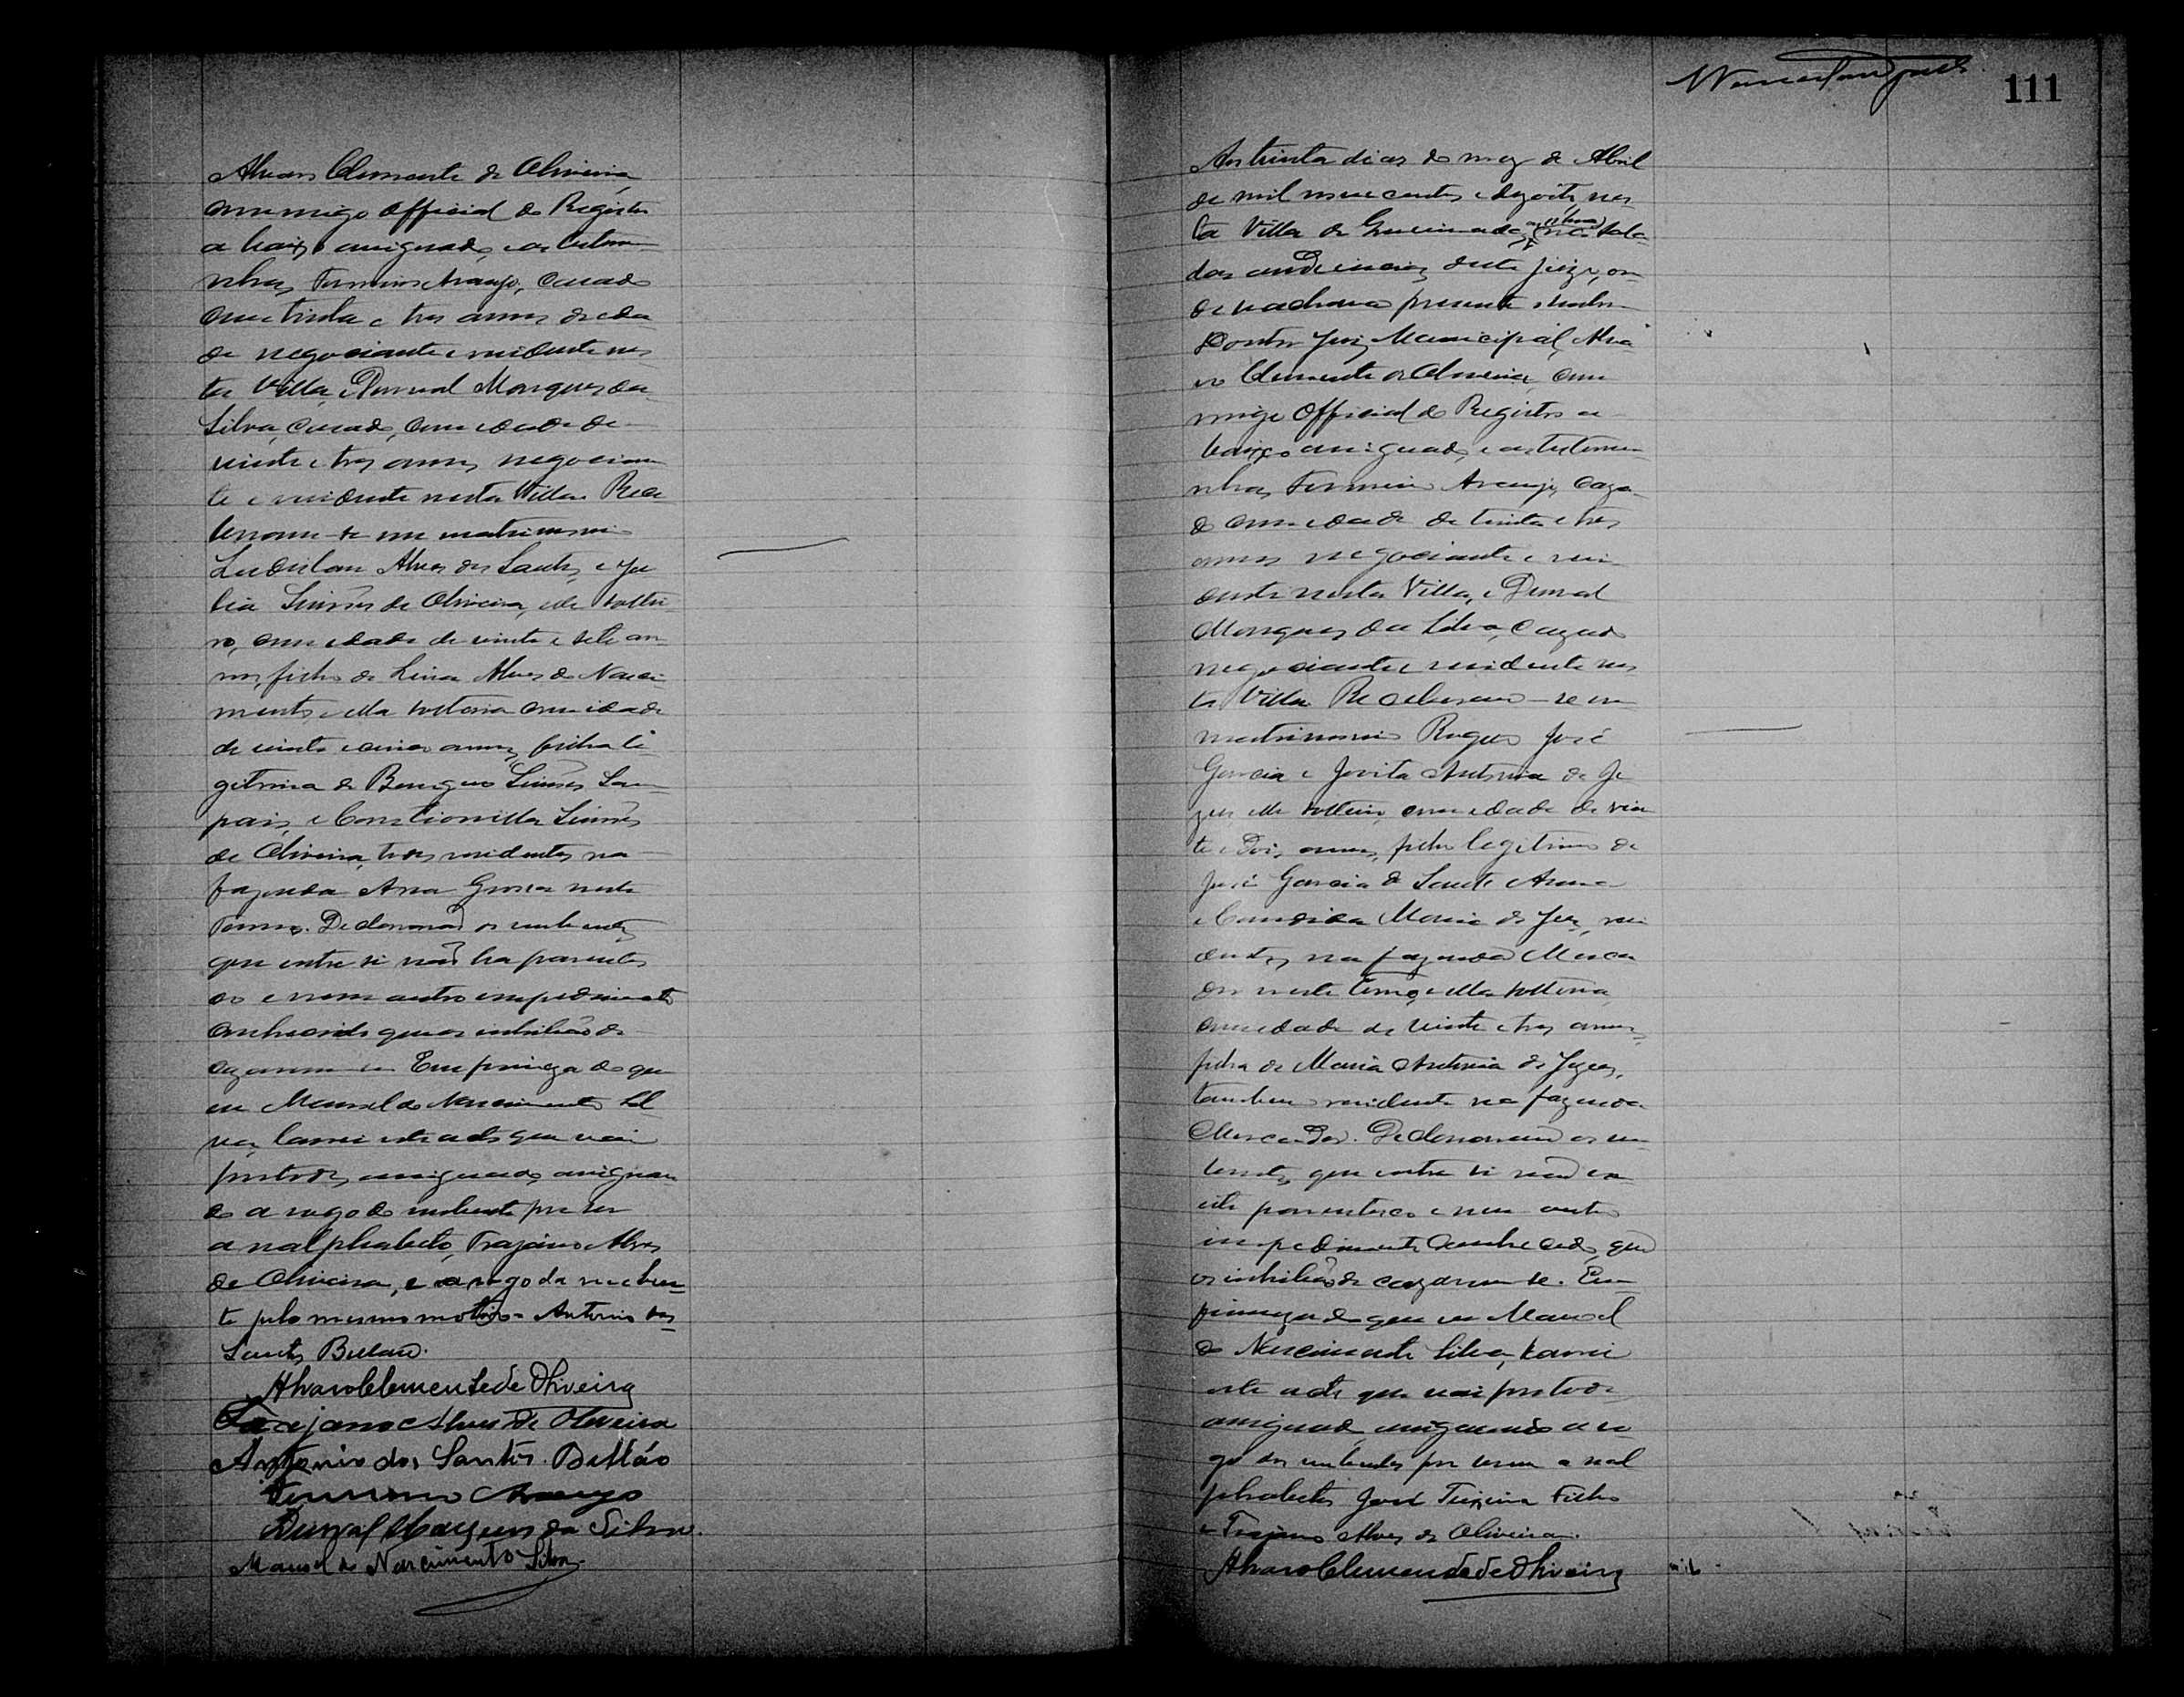 Alvaro Clemente de Oliveira
commigo official do Registro
a baixo assignado, e as testemu
nhas, Firmino Araujo, casado
com trinta e tres annos de eda
de negociante e residente nes
ta Villa, e Durval Marques da
Silva, casado, com edade de
vinte e tres annos, negocian
te e residente nesta Villa. Rece
beram-se em matrimonio
Alves dos Santos, e Ju
lia Simões de Oliveira, elle soltei
ro, com edade de vinte e sete an
nos, filho de Lina Alves do Nasci
mento, e ella solteira com edade
de vinte e cinco annos, filha le
gitima de Simões Sam
paio, e Simões
de Oliveira, todos residentes na
fazenda Area Grossa neste
Termo. Declararão os nubentes,
que entre si não ha parentes
co e nem outro impedimento
conhecido que os inhibião de
cazarem-se. Em firmeza do que
eu Manoel do Nascimento Sil
va, lavrei este acto que vai
por todos assignado, assignan
do a rogo do nubente por ser
analphabeto, Trajano Alves
de Oliveira, e a rogo da nuben
te pelo mesmo motivo Antonio dos
Santos
Alvaro Clemente de Oliveira
Trajano Alves de Oliveira
Antonio dos Santos
Firmino Araujo
Durval Marques da Silva.
Manoel do Nascimento Silva.
111
Aos trinta dias do mez de Abril
de mil nove centos e dezoito, nes
ta Villa de na sala
das audiencias deste juizo, on
de se achava presente o
Doutor Juiz Municipal, Alva
ro Clemente de Oliveira, com
migo Official do Registro a
baixo assignado, e as testemu
nhas, Firmino Araujo, caza
do com edade de trinta e tres
annos negociante e resi
dente nesta Villa, e Durval
Marques da Silva, cazado
negociante e residente nes
ta Villa. Receberam-se em
matrimonio Roque José
Garcia e Jovita Antonia de Je
zus, elle solteiro, com edade de vin
te e dois annos, filho legitimo de
José Garcia de Sant Anna
e Candida Maria de Jezus, resi
dentes na fazenda
neste termo, e ella solteira
com edade de vinte e tres annos,
filha de Maria Antonia de Jezus,
tambem residente na fazenda
Declararam os nu
bentes, que entre si não ex
iste parentesco e nem outro
impedimento conhecido, que
os inhibião de cazarem-se. Em
firmeza do que eu Manoel
do Nascimento Silva, lavrei
este acto que vai por todos
assignado, assignando a ro
go dos nubentes por serem anal
phabetos José Teixeira Filho
e Trajano Alves de Oliveira.
Alvaro Clemente de Oliveira